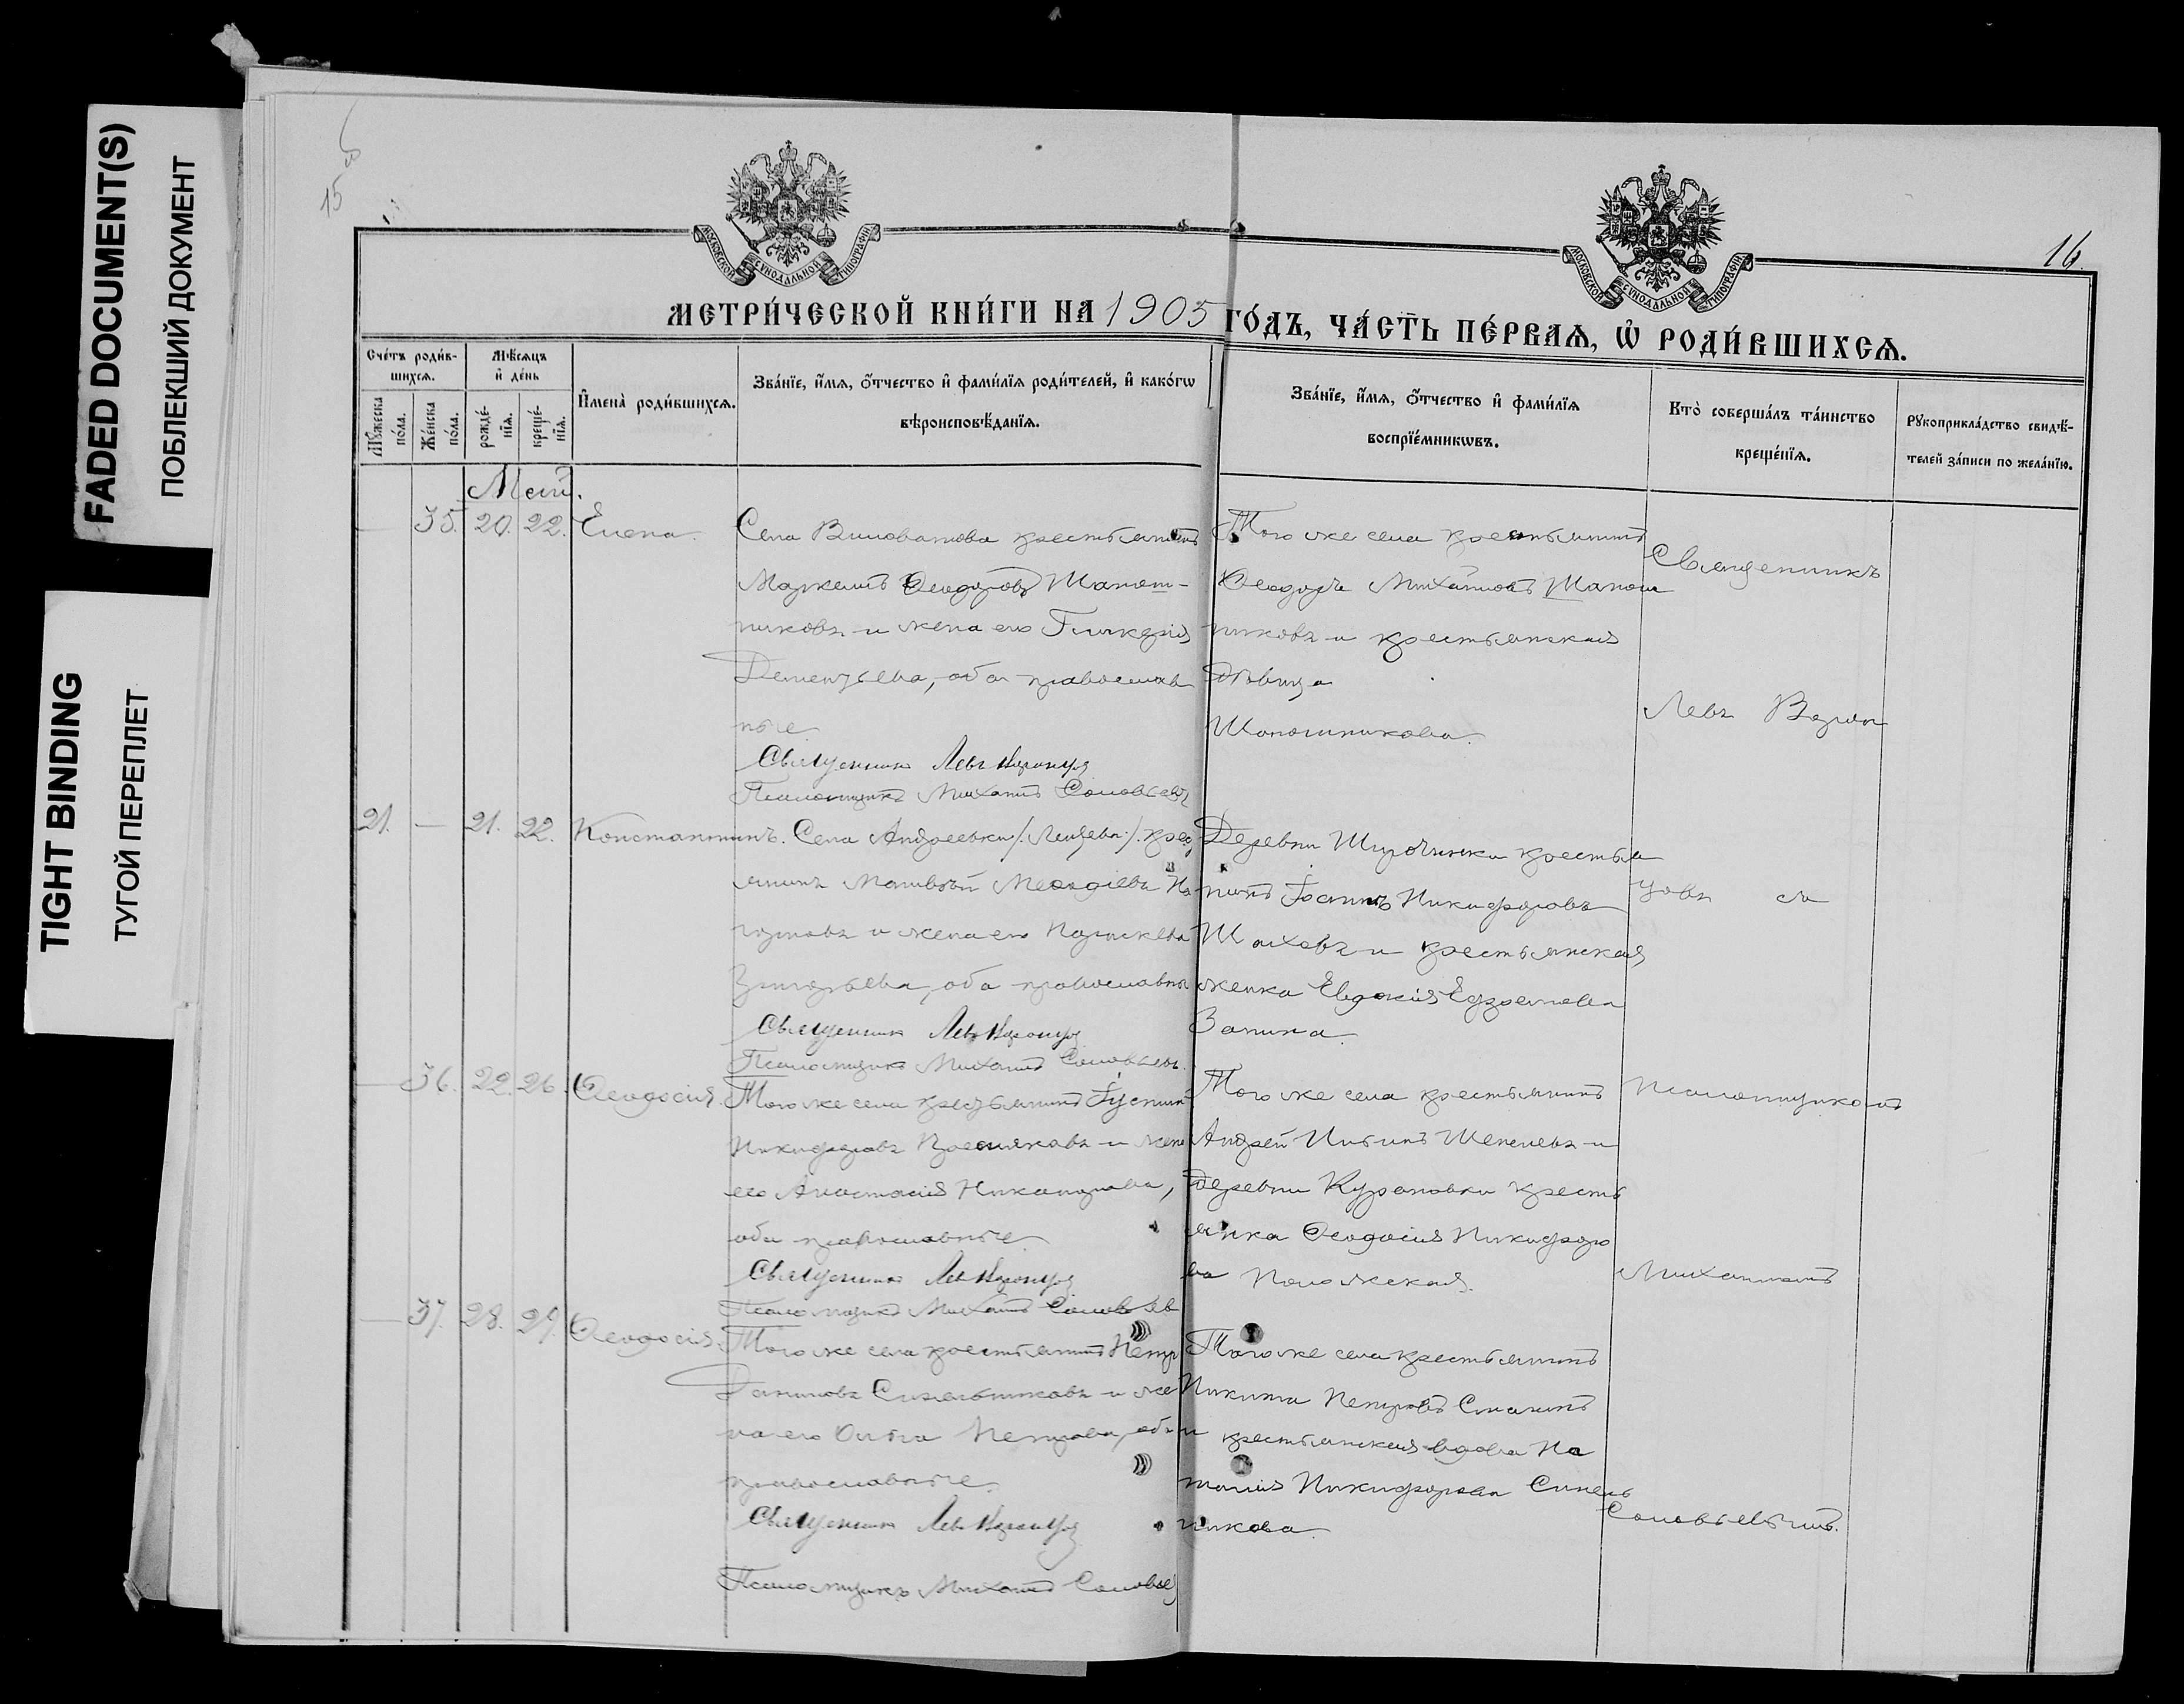 FADED DOCUMENT(S)
ПОБЛЕКШИЙ ДОКУМЕНТ
TIGHT BINDING
ТУГОЙ ПЕРЕПЛЕТ
15
16
МОСКОВСКОЙ СѴНОДАЛЬНОЙ ТИПОГРАФІИ
МОСКОВСКОЙ СѴНОДАЛЬНОЙ ТИПОГРАФІИ
МЕТРИ́ЧЕСКОЙ КНИ́ГИ НА 1905 ГО́ДЪ, ЧА́СТЬ ПЕ́РВАѦ, Ѡ҆ РОДИ́ВШИХСѦ.
Сче́тъ роди́вшихсѧ.
Мꙋ́жеска по́ла.
Же́нска по́ла.
Мѣ́сѧцъ и҆ де́нь
рожде́нїѧ.
креще́нїѧ.
И҆мена̀ роди́вшихсѧ.
Зва́нїе, и҆́мѧ, ѻ҆́тчество и҆ фами́лїѧ роди́телей, и҆ како́гѡ
вѣроисповѣ́данїѧ.
Зва́нїе, и҆́мѧ, ѻ҆́тчество и҆ фами́лїѧ
воспрїе́мникѡвъ.
Кто̀ соверша́лъ та́инство
креще́нїѧ.
Рꙋкоприкла́дство свидѣ́-
телей за́писи по жела́нїю.
Май.
— 35. 20. 22. Елена.
Села Виловатова крестьянинъ
Маркелъ Ѳеодоровъ Шапош-
никовъ и жена его Гликерія
Дементьева, оба православ
ные.
Священникъ Левъ
Псаломщикъ Михаилъ Соловьевъ
Того же села крестьянинъ
Ѳеодоръ Михайловъ Шапош
никовъ и крестьянская
дѣвица
Шапошникова.
Священникъ
Левъ
21. — 21. 22. Константинъ.
Села Андреевки /. Лещева ./. крест
янинъ Матвѣй
и жена его Параскева
оба православны
Священникъ Левъ
Псаломщикъ Михаилъ Соловьевъ.
Деревни крестья
нинъ Іоаннъ Никифоровъ
и крестьянская
женка Евдокія
Зотина.
съ
— 36. 22. 26. Ѳеодосія.
Того же села крестьянинъ Іустинъ
Никифоровъ и жена
его Анастасія Никанорова,
оба православные.
Священникъ Левъ
Псаломщикъ Михаилъ Соловьев
Того же села крестьянинъ
Андрей и
деревни Курановки кресть
янка Ѳеодосія Никифоро
ва
псаломщикомъ
Михаиломъ
— 37. 28. 29. Ѳеодосія.
Того же села крестьянинъ Петръ
Даниловъ Синельниковъ и же
на его Ольга Петрова, оба
православные.
Священникъ Левъ
Псаломщикъ Михаилъ Соловьев
Того же села крестьянинъ
Никита Петровъ
и крестьянская вдова На
талія Никифорова Синель
никова.
Соловьевымъ.